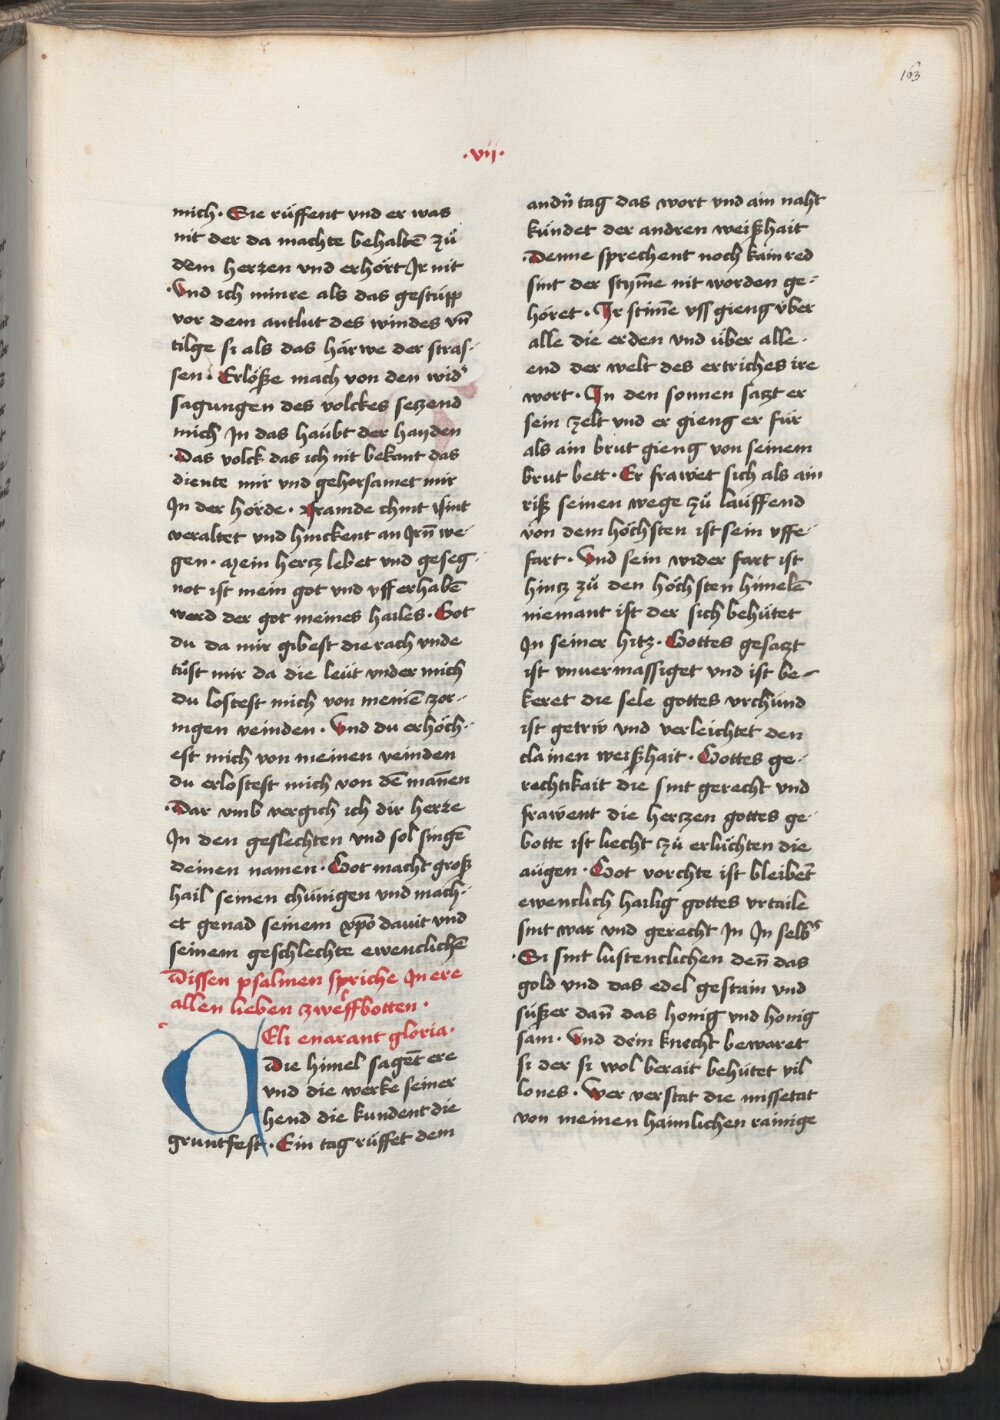 163
·vij·
mich· Sie rüffent vnd er was
nit der da machte behaltē zů
dem herzen vnd erhört Jr nit
·Vnd ich minre als das gestüpp
vor dem antlut des windes vn̄
tilge si als das härwe der stras-
sen· Erlöße mach von den wid'
sagungen des volckes setzend
mich Jn das haübt der hayden
·Das volck das ich nit bekant das
diente mir vnd gehorsamet mir
Jn der hörde· Framde chint sint
veraltet vnd hinckent an Jrn̄ we-
gen· Mein hertz lebet vnd geseg-
not ist mein got vnd vff erhabē
werd der got meines hailes· Got
du da mir gibest die rach vnde
tůst mir da die leüt vnder mich
du lostest mich von meinē zor-
nigen veinden· Vnd du erhöch-
est mich von meinen veinden
du erlostest mich von dē mañen
·Dar vmb vergich ich dir herze
Jn den geslechten vnd sol singē
deinen namen· Got macht groß
hail seinen chünigen vnd mach-
et genad seinem xp̄o dauit vnd
seinem geschlechte ewenclichē
Dissen psalmen spriche Jn ere
allen lieben zwelffbotten·
Celi enarant gloria·
Die himel sagēt ere
vnd die werke seiner
hend die kundent die
gruntfest· Ein tag rüffet dem
andn̄ tag das wort vnd ain naht
kündet der andren weißhait
·Denne sprechent noch kain red
sint der stym̄e nit worden ge-
höret· Jr stim̄e vss gieng über
alle die erden vnd über alle·
end der welt des ertriches ire
wort· Jn den sonnen satzt er
sein zelt vnd er gieng er für
als ain brut gieng von seinem
brut bett· Er frawet sich als ain
riß seinen wege zů lauffend
von dem höchsten ist sein vffe-
fart· Vnd sein wider fart ist
hintz zů den höchsten himelē
niemant ist der sich behütet
Jn seiner hitz· Gottes gesatzt
ist vnuermassiget vnd ist be-
keret die sele gottes vrchünd
ist getriw vnd verleichtet den
clainen weißhait· Gottes ge-
rechtikait die sint gerecht vnd
frawent die hertzen gottes ge-
botte ist liecht zů erlüchten die
augen· Got vorchte ist bleibēt
ewenclich hailig gottes vrtaile
sint war vnd gerecht Jn Jn selbs
·Si sint lustenclichen den̄ das
gold vnd das edel gestain vnd
süßer dan̄ das honig vnd honig
sam· Vnd dein knecht bewaret
si der si wol berait behütet vil
lones· Wer verstat die missetat
von meinen haimlichen rainige